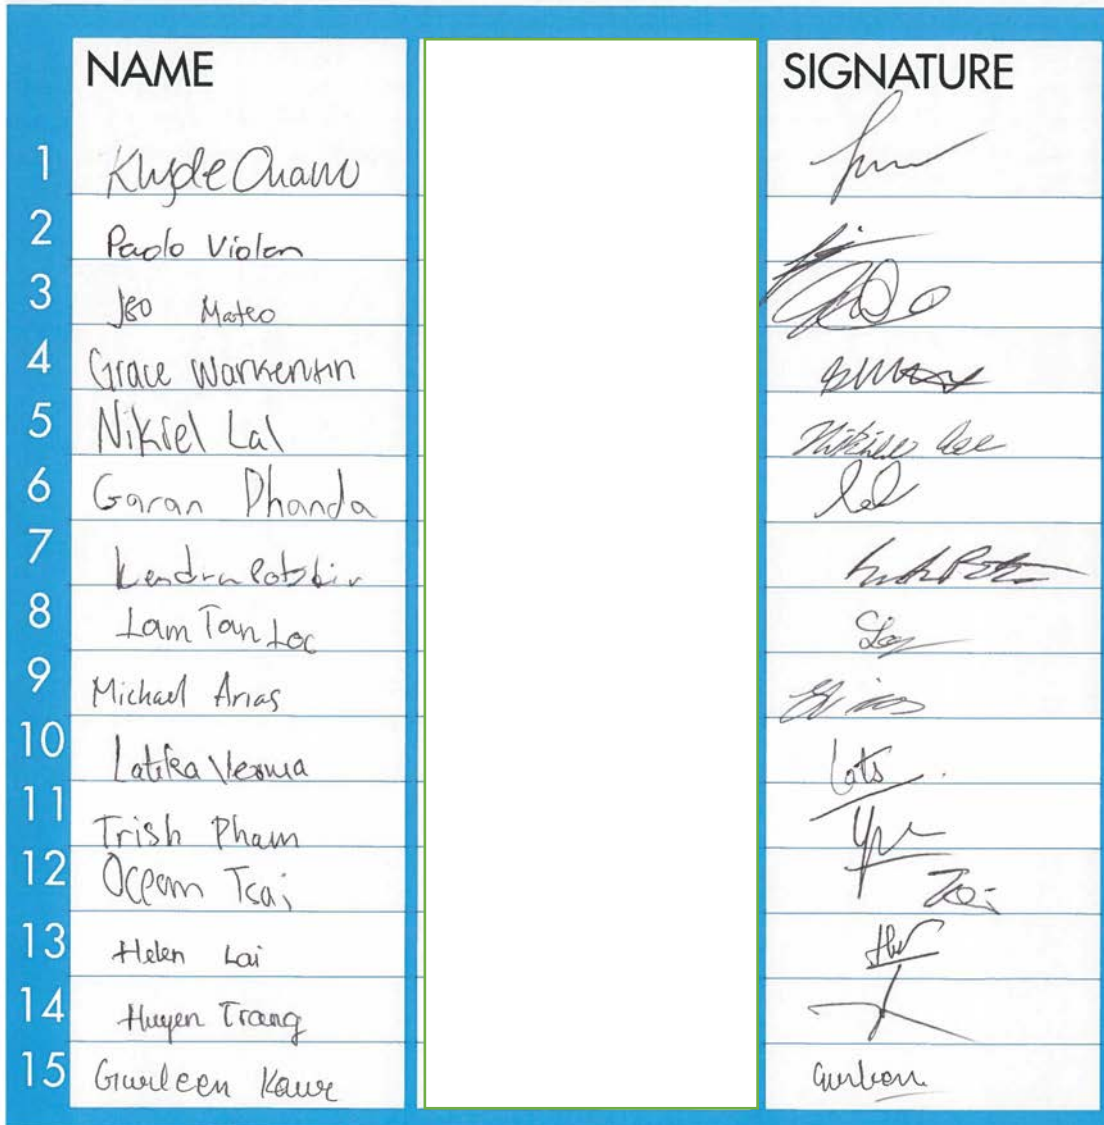 NAME SIGNATURE
1 Klyde
2 Paolo Violan
3 Mateo
4 Grace Warkentin
5 Nikiel Lal Nikiel Lal
6 Garan Dhanda
7 Kendra
8 Lam Tan Loc Loc
9 Michael Arias
10 Latika Verma Lats
11 Trish Pham
12 Ocean Tsai Tsai
13 Helen Lai
14 Huyen Trang
15 Gurleen Kaur Gurleen